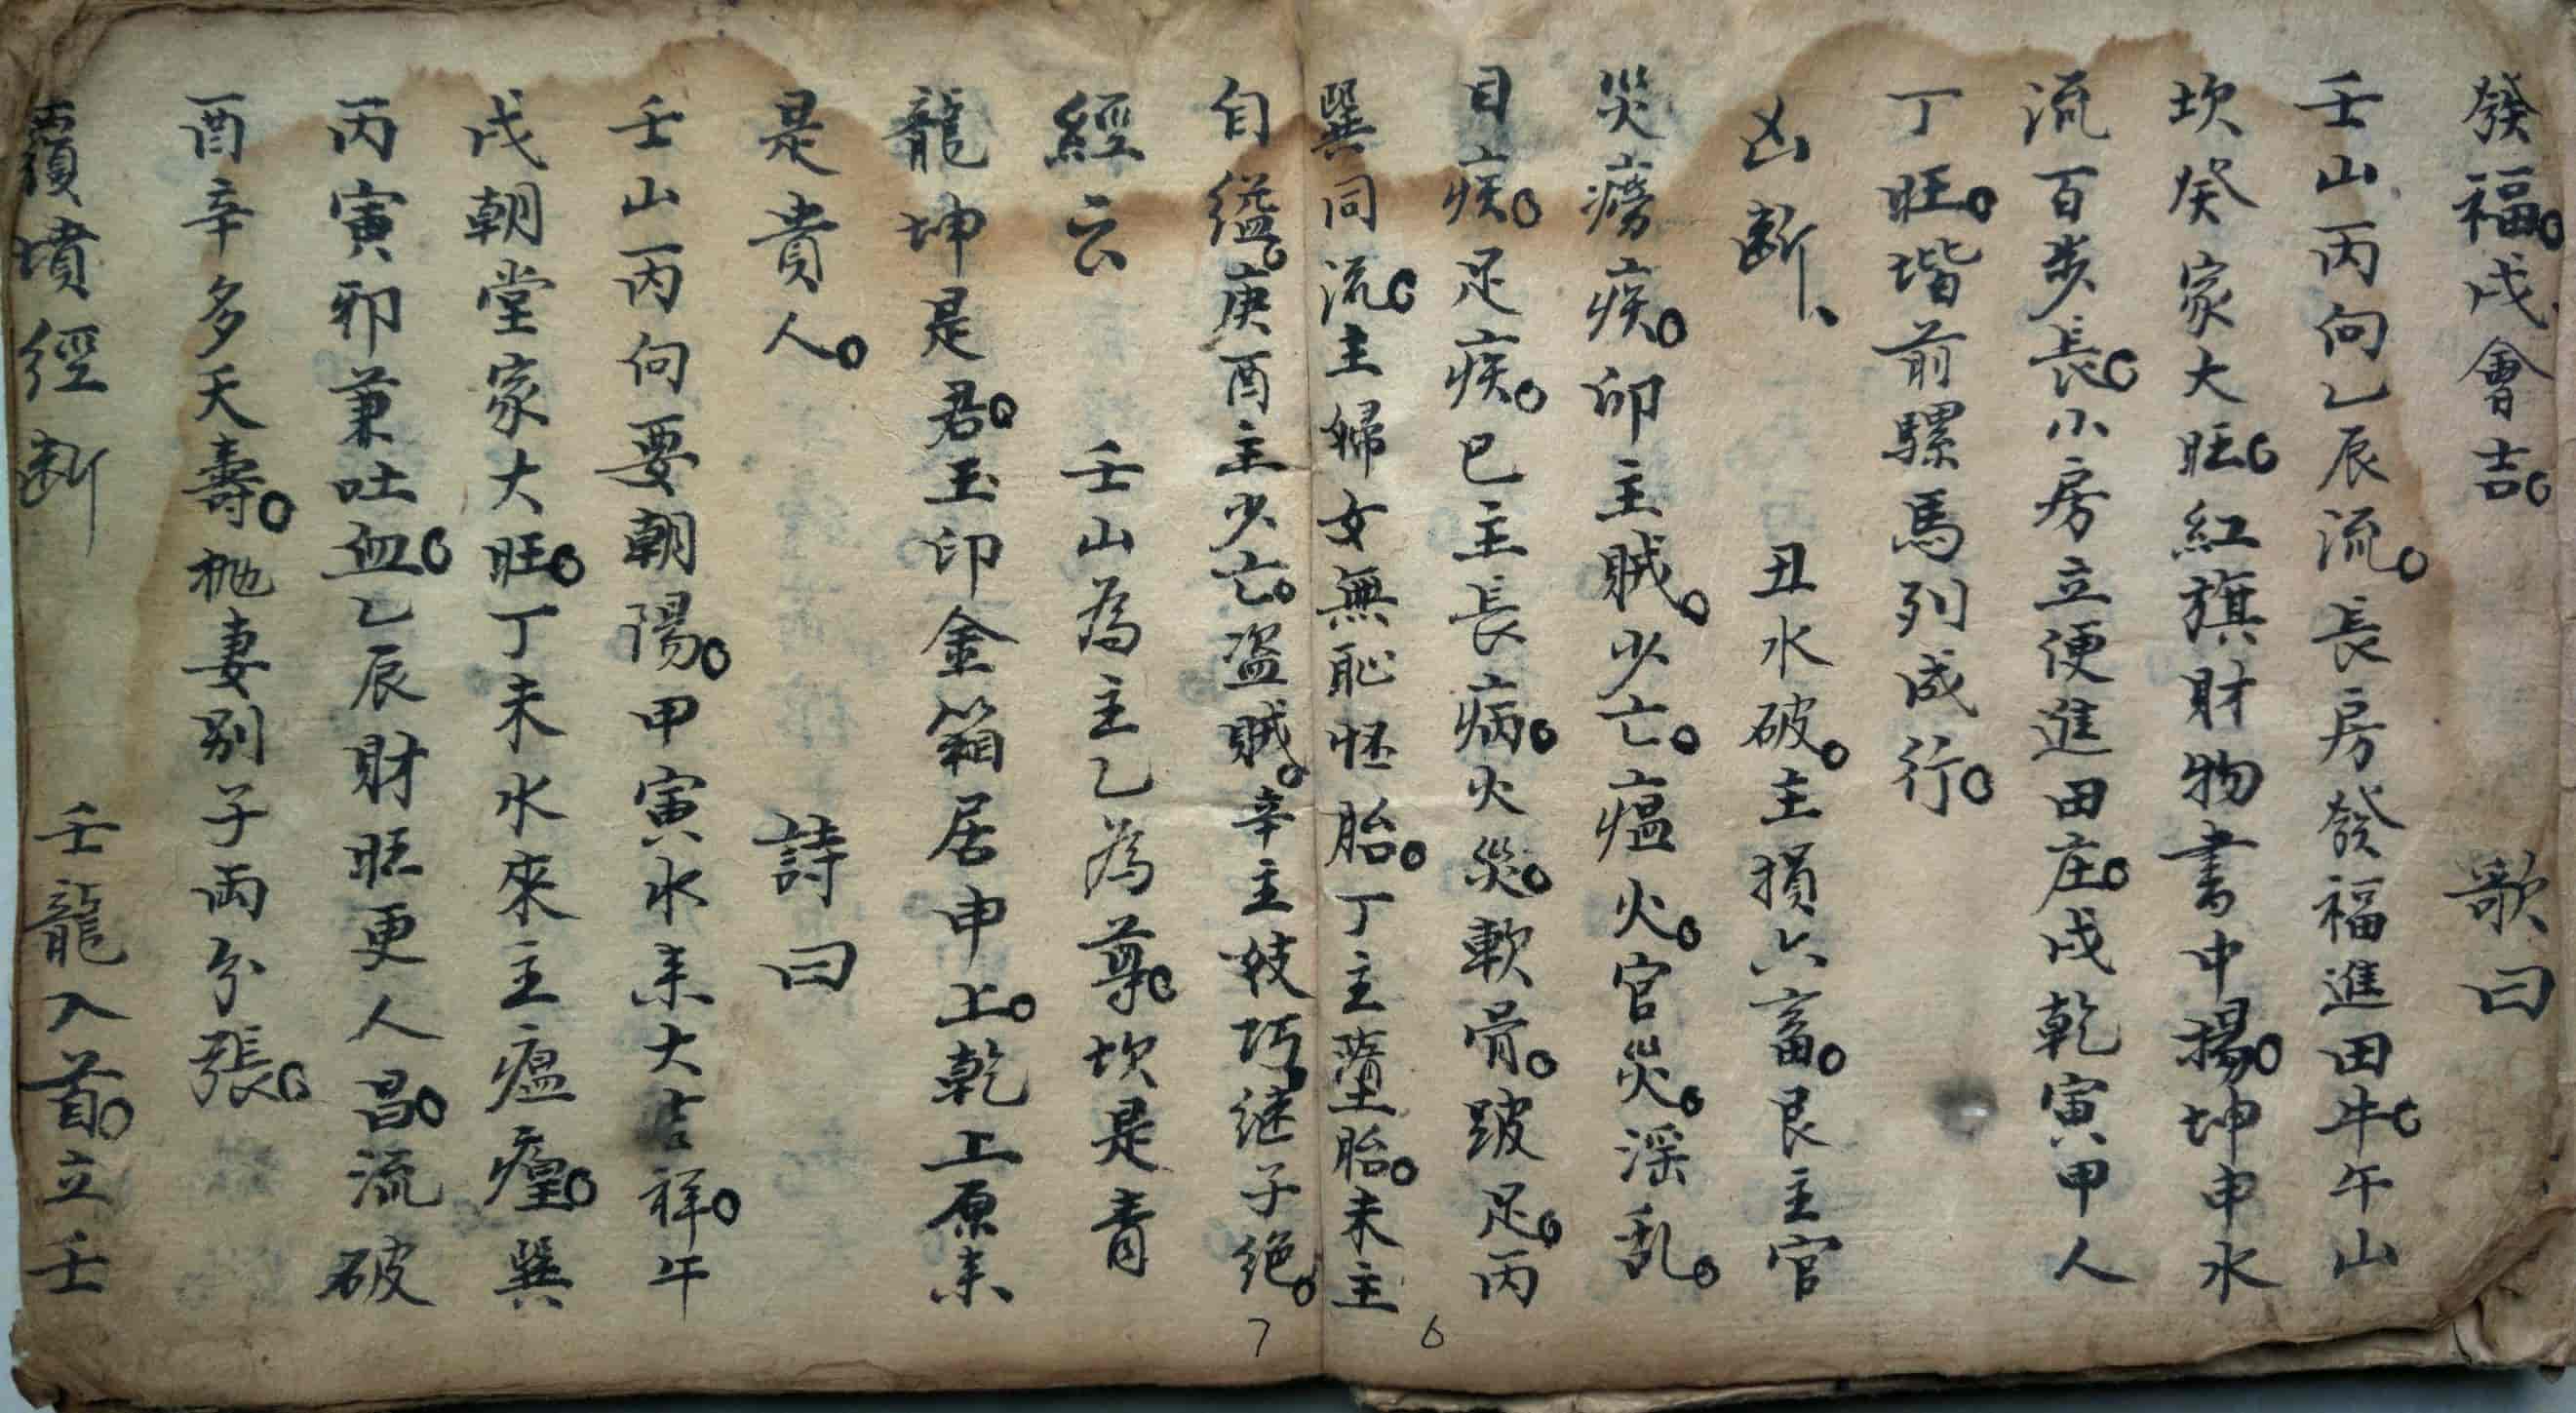 發福。戌會吉。 歌曰
壬山丙向乙辰流。長房發福進田牛。午山
坎癸家大旺。紅旗財物書中揚。坤申水
流百步長。小房立便進田庄。戌乾寅甲人
丁旺。堦前騾馬列成行。
凶断、 丑水破。主損六畜。艮主官
災癆疾。卯主賊。少亡。瘟火。官災。淫乱。
目疾。足疾。巳主長病。火災。軟骨。跛足。丙
巽同流。主婦女無恥怀胎。丁主墮胎。未主
自縊。庚酉主少亡。盗賊。辛主妓巧。継子绝。
經云 壬山為主乙為尊。坎是青
龍坤是君。玉印金箱居申上。乾上原来
是貴人。 詩曰
壬山丙向要朝陽。甲寅水来大吉祥。午
戌朝堂家大旺。丁未水來主瘟㾮。巽
丙寅卯兼吐血。乙辰財旺更人昌。流破
酉辛多夭壽。抛妻别子両分張。
覆墳經断 壬龍入首。立壬
7 6